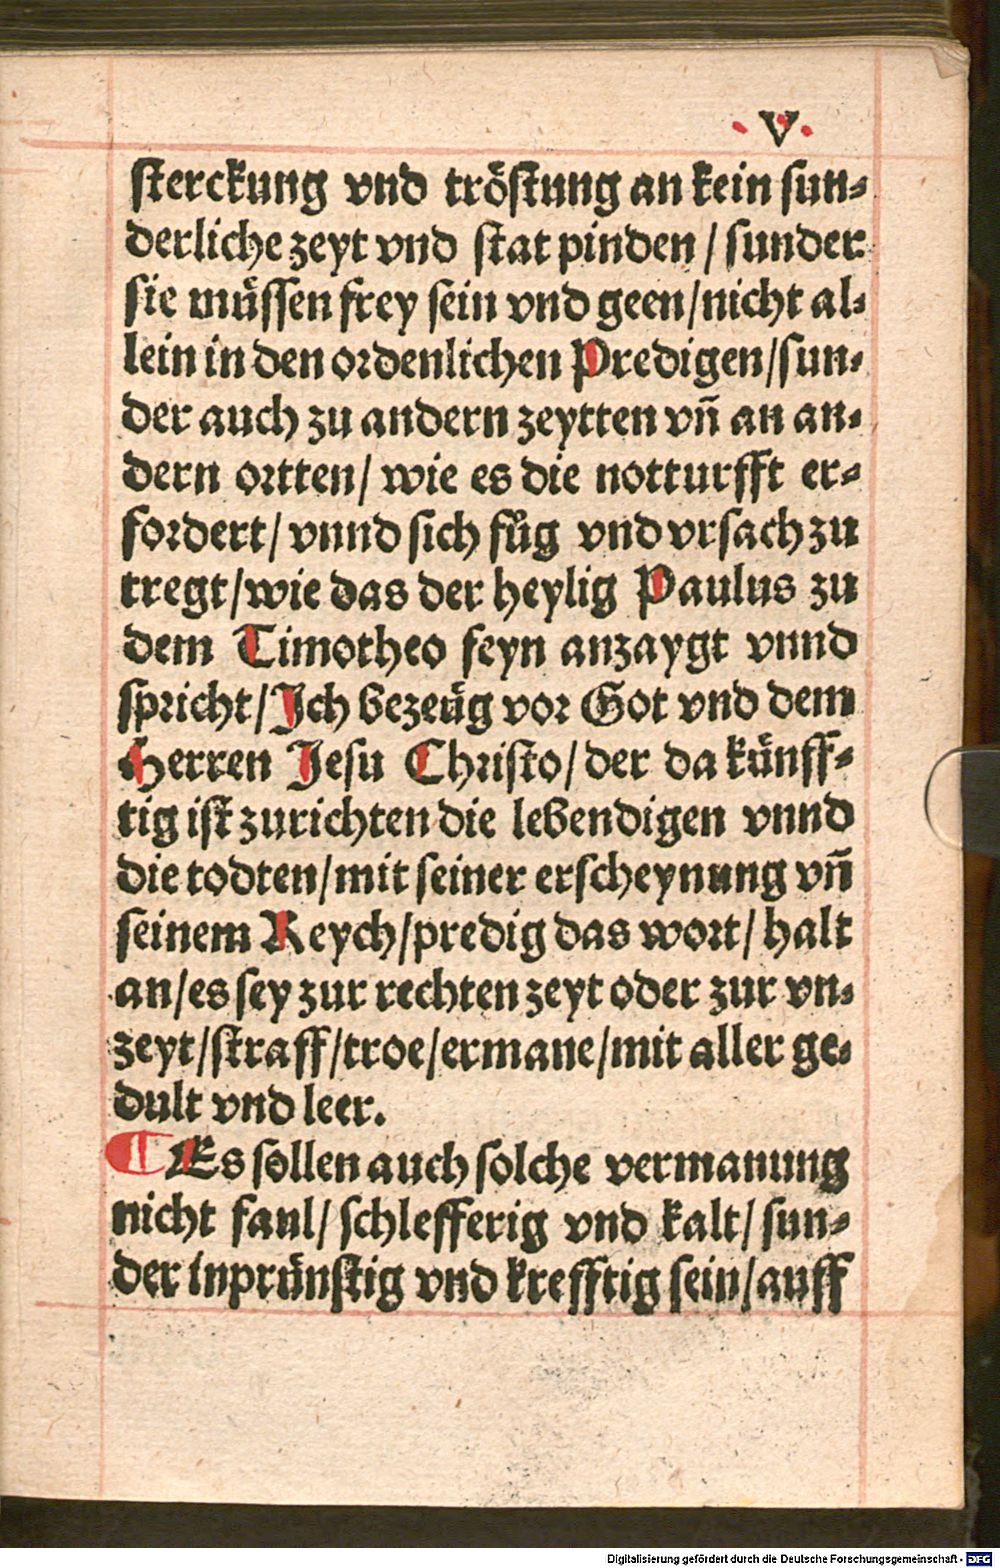 .V.
sterckung vnd tröstung an kein sun-
derliche zeyt vnd stat pinden / sunder
sie müssen frey sein vnd geen/nicht al-
lein in den ordenlichen Predigen/sun-
der auch zu andern zeytten vñ an an-
dern ortten/ wie es die notturfft er-
fordert/ vnnd sich fůg vnd vrsach zu
tregt/wie das der heylig Paulus zu
dem Timotheo feyn anzaygt vnnd
spricht/Jch bezeüg vor Got vnd dem
Herren Jesu Christo/ der da künff-
tig ist zurichten die lebendigen vnnd
die todten/mit seiner erscheynung vñ
seinem Reych/predig das wort/ halt
an/es sey zur rechten zeyt oder zur vn-
zeyt/straff/troe/ermane/mit aller ge-
dult vnd leer.
¶ Es sollen auch solche vermanung
nicht faul/ schlefferig vnd kalt/ sun-
der inprünstig vnd krefftig sein/auff
Digitalisierung gefördert durch die Deutsche Forschungsgemeinschaft - DFG